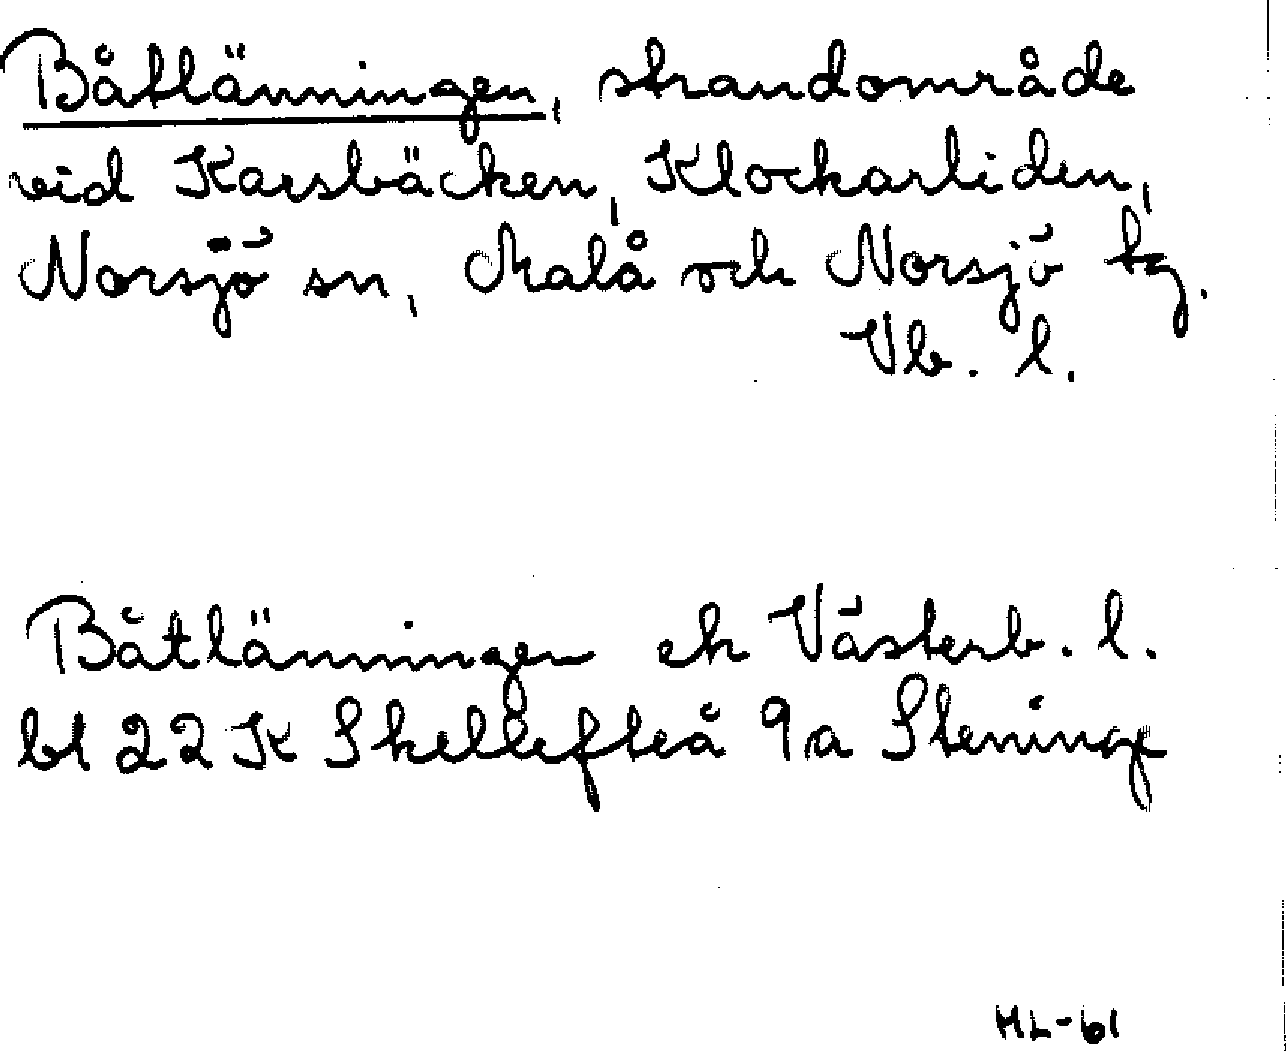 Båtlänningen, strandområde
vid Karsbäcken, Klockarliden,
Norsjö sn, Malå och Norsjö tg.
Vb. l.
Båtlänningen ek Västerb. l.
bl 22 K Skellefteå 9a Steninge
ML-61